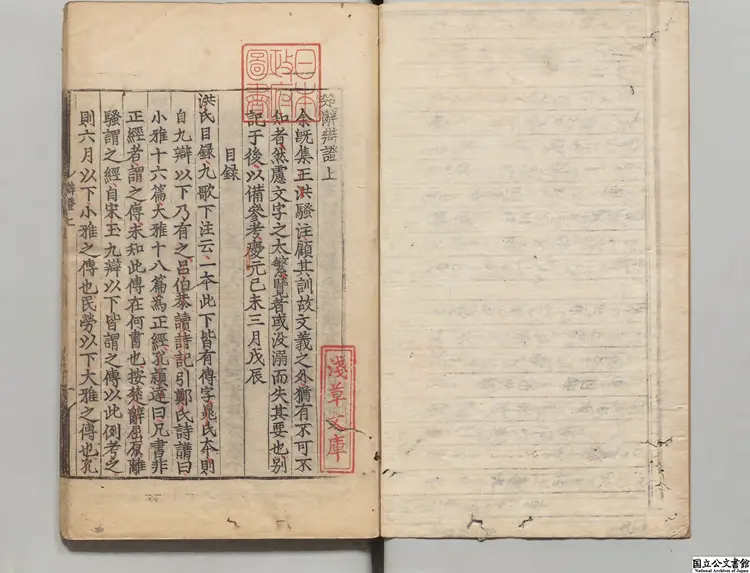 楚辭辯證上
余旣集王洪騷注顧其訓故文義之外猶有不可不
知者然慮文字之太繁覽者或没溺而失其要也别
記于後以備參考慶元己未三月戊辰
目録
洪氏目録九歌下注云一本此下皆有傳字晁氏本則
自九辯以下乃有之呂伯恭讀詩記引鄭氏詩譜曰
小雅十六篇大雅十八篇為正經孔穎達曰凡書非
正經者謂之傳未知此傳在何書也按楚辭屈原離
騷謂之經自宋玉九辯以下皆謂之傳以此例考之
則六月以下小雅之傳也民勞以下大雅之傳也孔
辯證上
一
日本
政府
圖書
淺草文庫
国立公文書館
National Archives of Japan